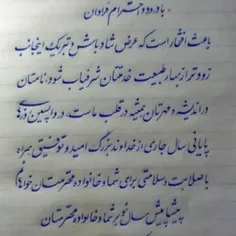 با درود و احترام فراوان
باعث افتخار است که عرض شادباش و تبریک اینجانب
زودتر از بهار طبیعت خدمتتان شرفیاب شود، نامتان
در اندیشه و مهرتان همیشه در قلب ماست، در واپسین روزهای
پایانی سال جاری از خداوند بزرگ امید و توفیق همراه
با صلابت و سلامتی برای شما و خانواده محترمتان خواهانم
پیشاپیش سال نو بر شما و خانواده محترمتان